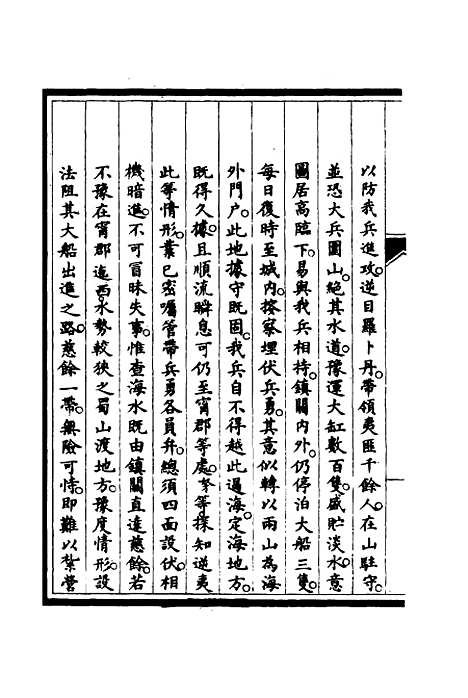 以防我兵進攻。逆目羅卜丹。帶領夷匪千餘人。在山駐守。
並恐大兵圍山。絕其水道。豫運大缸數百隻。盛貯淡水。意
圖居高臨下。易與我兵相持。鎮關內外。仍停泊大船三隻。
每日復時至城內。按察埋伏兵勇。其意似轉以兩山為海
外門戶。此地據守既固。我兵自不得越此過海。定海地方。
既得久據。且順流瞬息可仍至甯郡等處。孥等探知逆夷
此等情形。業已密囑管帶兵勇各員弁。總須四面設伏。相
機暗進。不可冒昧失事。惟查海水既由鎮關直達慈餘。若
不豫在甯郡迤西。水勢較狹之蜀山渡地方。豫度情形。設
法阻其大船出進之路。慈餘一帶。無險可恃。即難以紮營